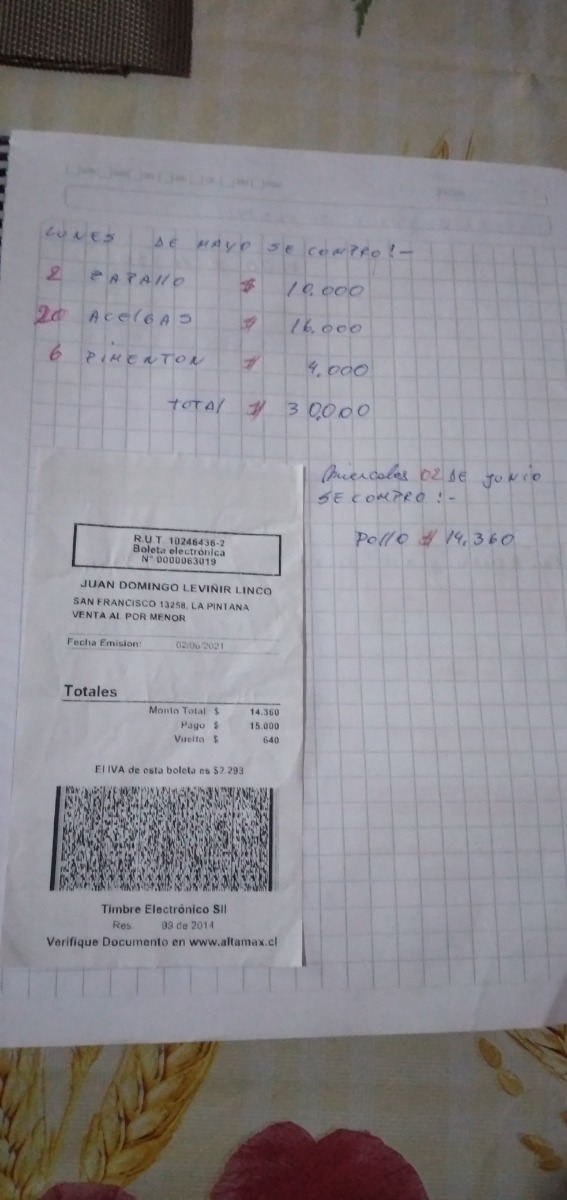 LUNES DE MAYO SE COMPRO!-
2 ZAPALLO $ 10.000
20 ACELGAS $ 16.000
6 PIMENTON $ 4.000
TOTAL $ 30.000
Miercoles 02 DE JUNIO
SE COMPRO!-
POLLO $ 14.360
R.U.T. 10246436-2
Boleta electrónica
N° 0000063019
JUAN DOMINGO LEVIÑIR LINCO
SAN FRANCISCO 13258, LA PINTANA
VENTA AL POR MENOR
Fecha Emision: 02/06/2021
Totales
Monto Total $ 14.360
Pago $ 15.000
Vuelto $ 640
El IVA de esta boleta es $2.293
Timbre Electrónico SII
Res. 99 de 2014
Verifique Documento en www.altamax.cl